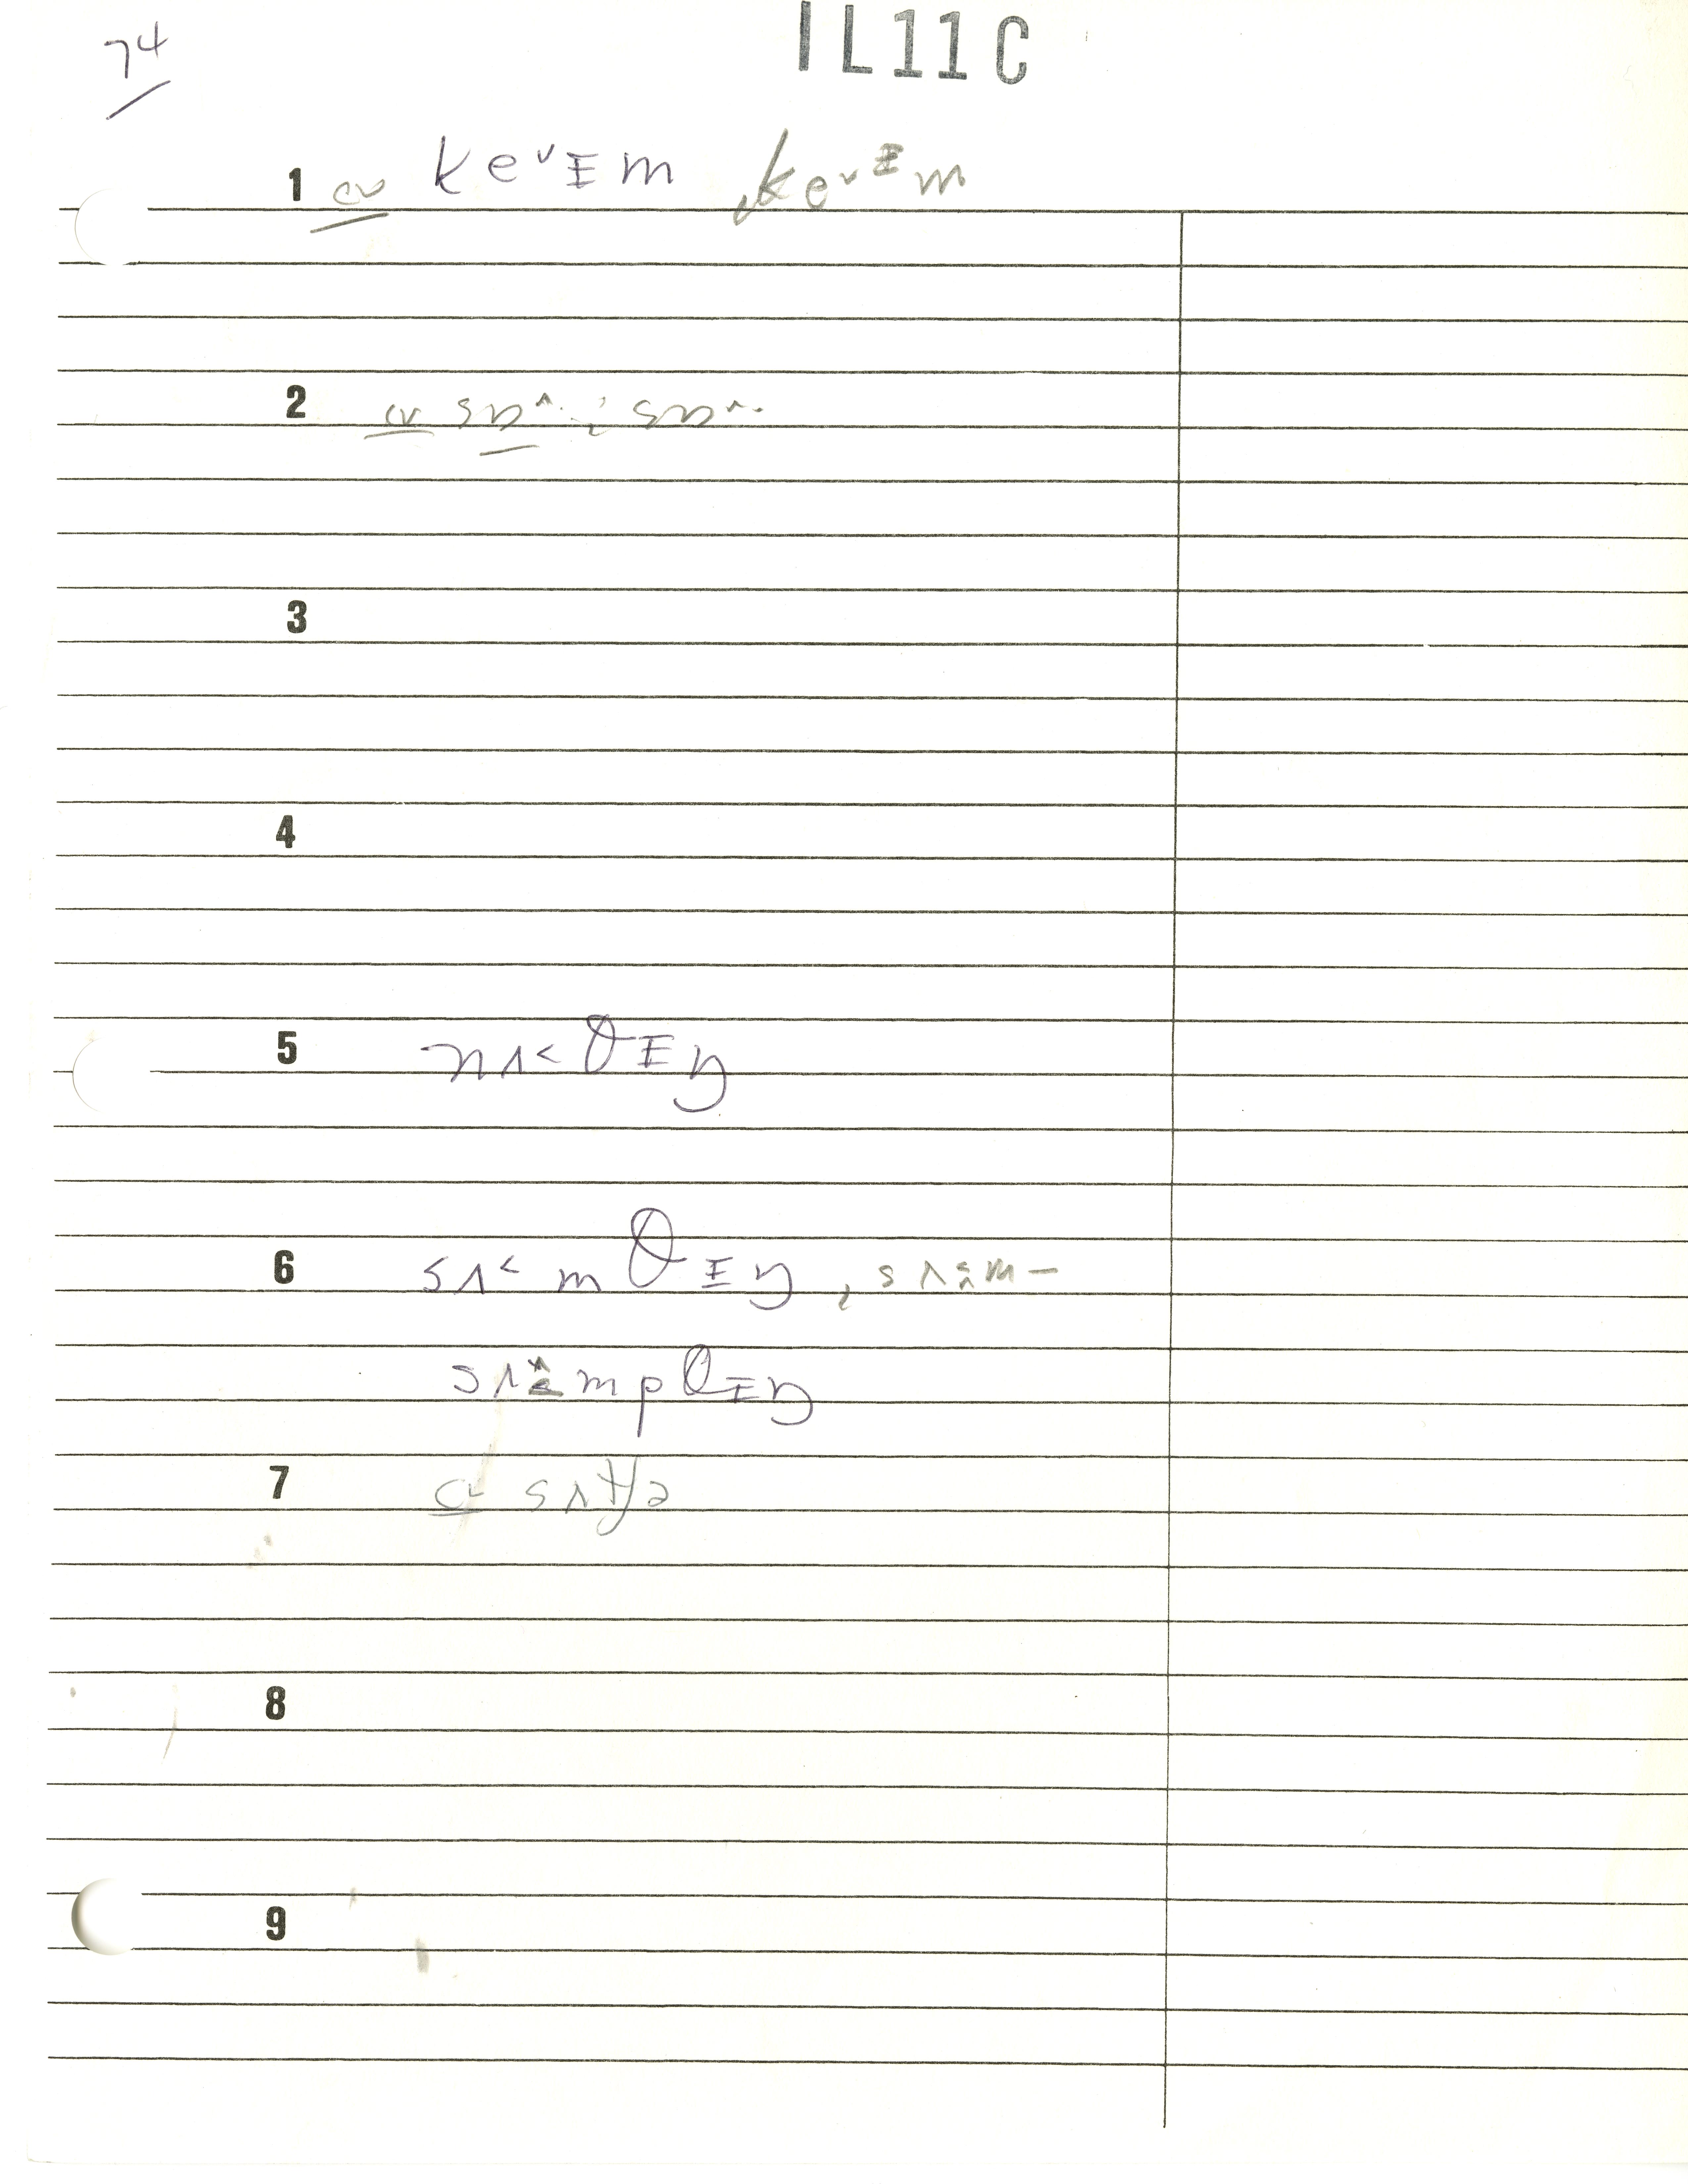 74
IL11C
1 cv keᵛɪm, keᵛɪm
2 cv
3
4
5 nʌ˂θɪŋ
6 sʌ˂mθɪŋ, sʌm–
sʌmpθɪŋ
7 cv sʌtʃə
8
9